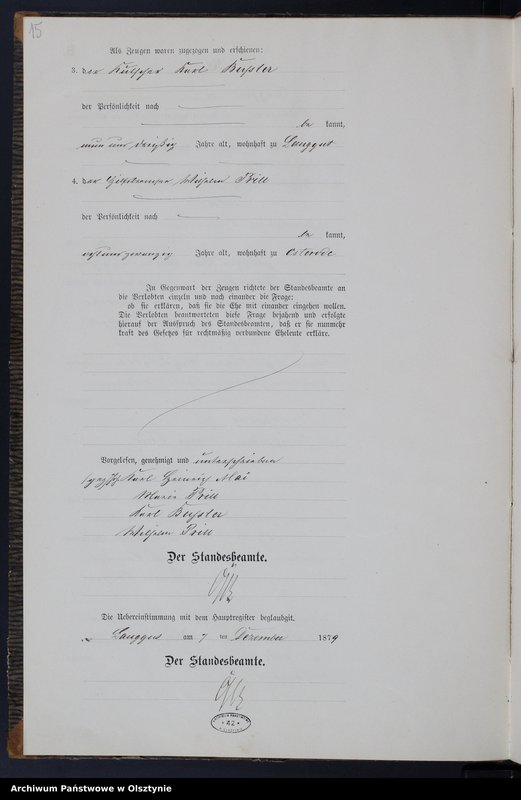 15
Als Zeugen waren zugezogen und erschienen:
3. der Kutscher Karl Buchsler
der Persönlichkeit nach
be kannt,
neun und dreißig Jahre alt, wohnhaft zu Langgut
4. der Wilhelm Brill
der Persönlichkeit nach
be kannt,
acht und zwanzig Jahre alt, wohnhaft zu Osterode
In Gegenwart der Zeugen richtete der Standesbeamte an
die Verlobten einzeln und nach einander die Frage:
ob sie erklären, daß sie die Ehe mit einander eingehen wollen.
Die Verlobten beantworteten diese Frage bejahend und erfolgte
hierauf der Ausspruch des Standesbeamten, daß er sie nunmehr
kraft des Gesetzes für rechtmäßig verbundene Eheleute erkläre.
Vorgelesen, genehmigt und unterschrieben
Karl Heinrich Mai
Marie Brill
Karl Buchsler
Wilhelm Brill
Der Standesbeamte.
Die Uebereinstimmung mit dem Hauptregister beglaubigt.
Langgut am 7 ten Dezember 1879
Der Standesbeamte.
Archiwum Państwowe w Olsztynie